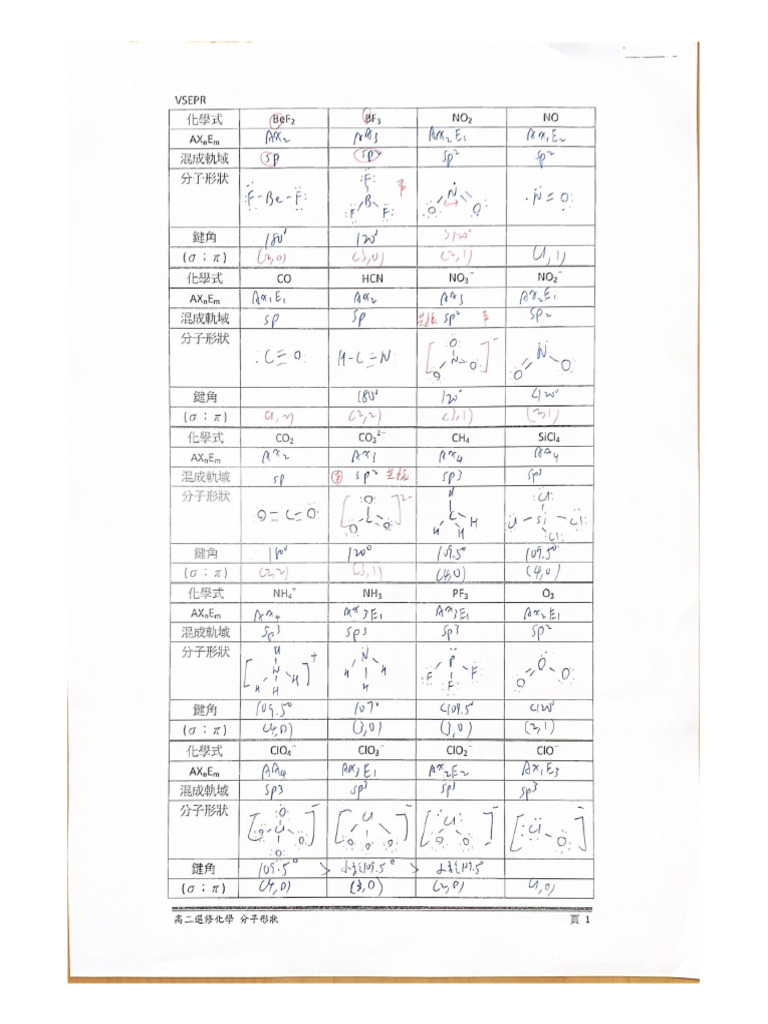 VSEPR
化學式 BeF₂ BF₃ NO₂ NO
AXₙEₘ AX₂ AX₃ AX₂E₁ AX₁E₂
混成軌域 sp sp² sp² sp²
分子形狀 F-Be-F F B F F 平 N O O N=O
鍵角 180° 120° >120°
(σ；π) (2,0) (3,0) (2,1) (1,1)
化學式 CO HCN NO₃⁻ NO₂⁻
AXₙEₘ AX₁E₁ AX₂ AX₃ AX₂E₁
混成軌域 sp sp 共振 sp² 平 sp²
分子形狀 :C≡O: H-C≡N: [O N O O]⁻ N O O
鍵角 180° 120° <120°
(σ；π) (1,2) (2,2) (3,1) (2,1)
化學式 CO₂ CO₃²⁻ CH₄ SiCl₄
AXₙEₘ AX₂ AX₃ AX₄ AX₄
混成軌域 sp sp² 共振 sp3 sp³
分子形狀 O=C=O [O C O O]²⁻ H C H H H Cl Cl-Si-Cl Cl
鍵角 180° 120° 109.5° 109.5°
(σ；π) (2,2) (3,1) (4,0) (4,0)
化學式 NH₄⁺ NH₃ PF₃ O₃
AXₙEₘ AX₄ AX₃E₁ AX₃E₁ AX₂E₁
混成軌域 sp3 sp3 sp3 sp²
分子形狀 [H N H H H]⁺ N H H H P F F F O O O
鍵角 109.5° 107° <109.5° <120°
(σ；π) (4,0) (3,0) (3,0) (2,1)
化學式 ClO₄⁻ ClO₃⁻ ClO₂⁻ ClO⁻
AXₙEₘ AX₄ AX₃E₁ AX₂E₂ AX₁E₃
混成軌域 sp3 sp³ sp³ sp³
分子形狀 [O O Cl O O]⁻ [Cl O O O]⁻ [Cl O O]⁻ [Cl O]⁻
鍵角 109.5° > 小於109.5° > 小於109.5°
(σ；π) (4,0) (3,0) (2,0) (1,0)
高二選修化學 分子形狀 頁 1